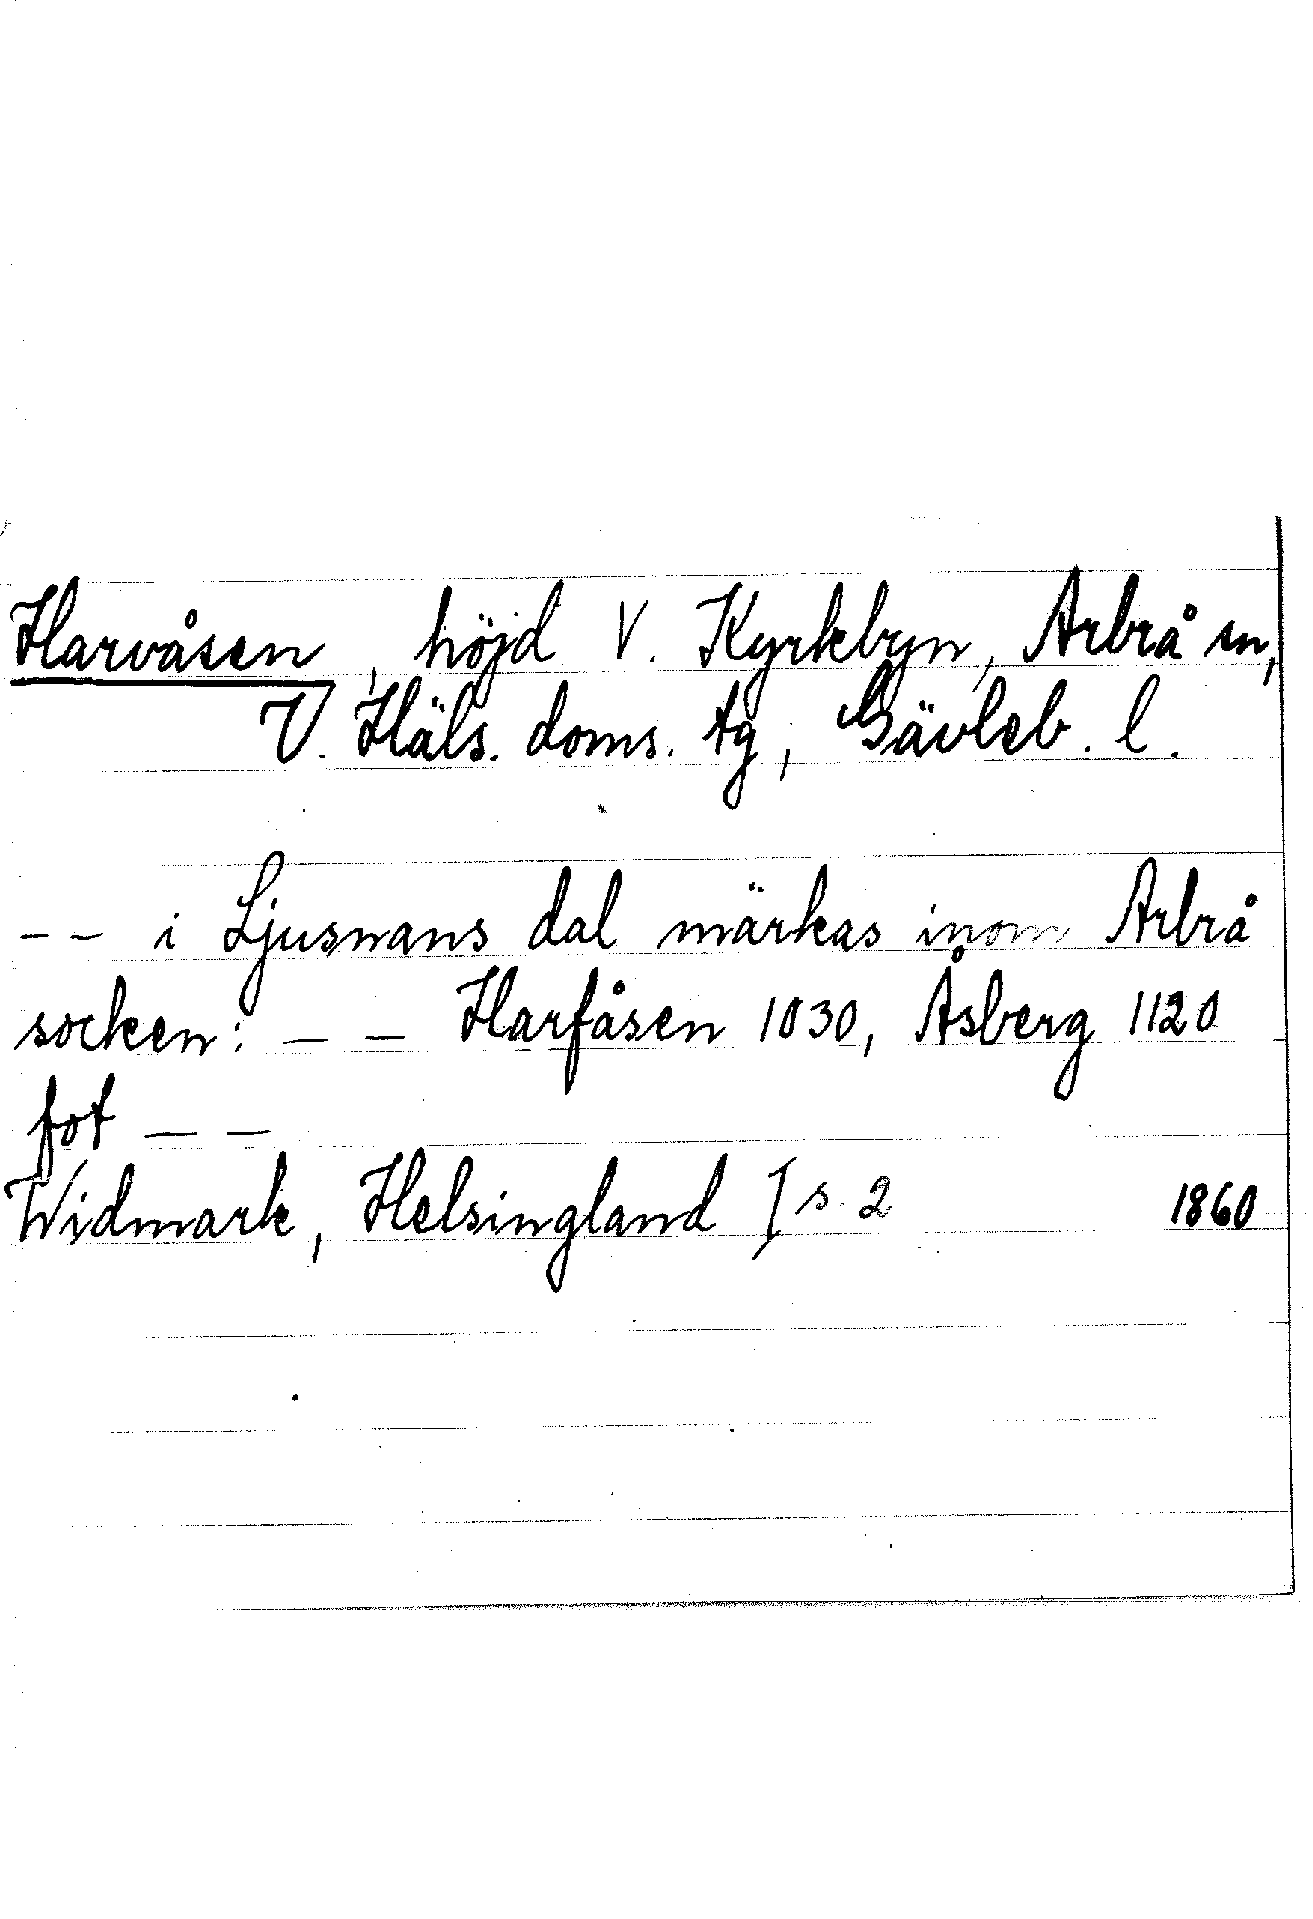 Harvåsen, höjd V. Kyrkbyn, Arbrå sn,
V. Häls. doms. tg, Gävleb. l.
-- i Ljusnans dal märkas inom Arbrå
socken: -- Harfåsen 1030, Åsberg 1120
fot --
Widmark, Helsingland I s. 2 1860